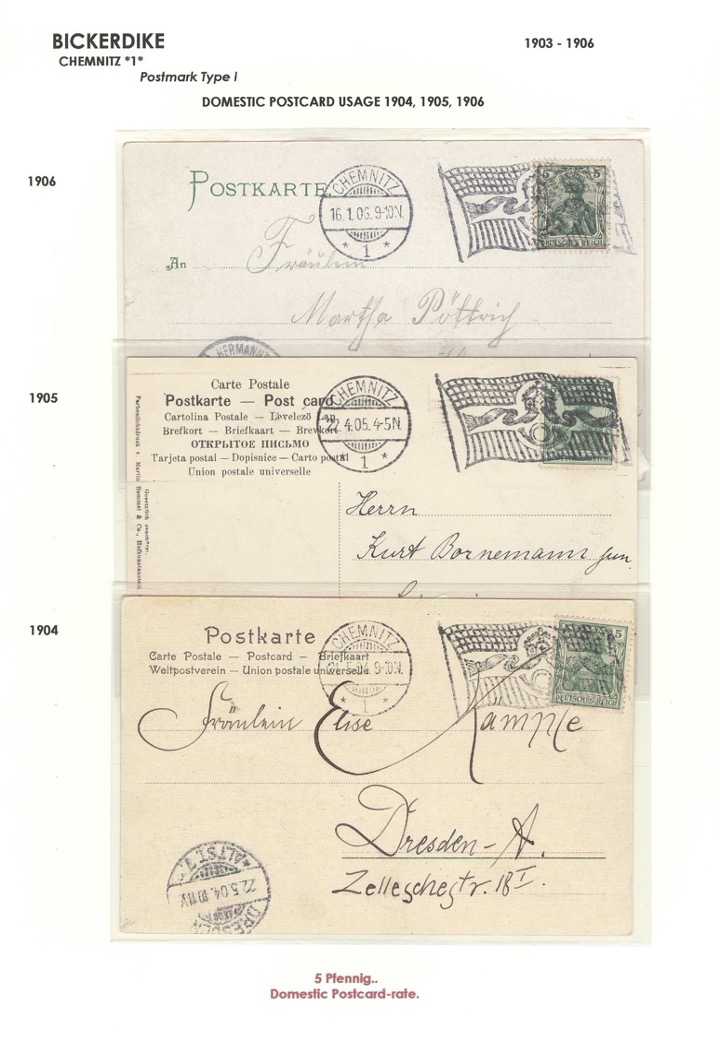 BICKERDIKE
1903 - 1906
CHEMNITZ *1*
Postmark Type I
DOMESTIC POSTCARD USAGE 1904, 1905, 1906
1906
POSTKARTE
CHEMNITZ
16.1.06.9-10N.
* 1 *
5 5
DEUTSCHES REICH
An
Fräulein
Martha Pöttrich
HERMANN
1905
Carte Postale
Postkarte — Post card
Cartolina Postale — Levelező Lap
Brefkort — Briefkaart — Brevkort
ОТКРЫТОЕ ПИСЬМО
Tarjeta postal — Dopisnice — Carto postal
Union postale universelle
CHEMNITZ
22.4.05.4-5N.
* 1 *
Farbenlichtdruck v. Martin Rommel & Co., Hofkunstanstalt,
Gesetzlich geschützt.
Herrn
Kurt Bornemann jun.
1904
Postkarte
Carte Postale — Postcard — Briefkaart
Weltpostverein — Union postale universelle
CHEMNITZ
5.04.9-10N.
* 1 *
5
DEUTSCHES REICH
Fräulein Elise Kämpfe
Dresden-A.
Zelleschestr. 18 I.
ALTST. 1
22.5.04.10-11V.
DRESDEN
5 Pfennig..
Domestic Postcard-rate.